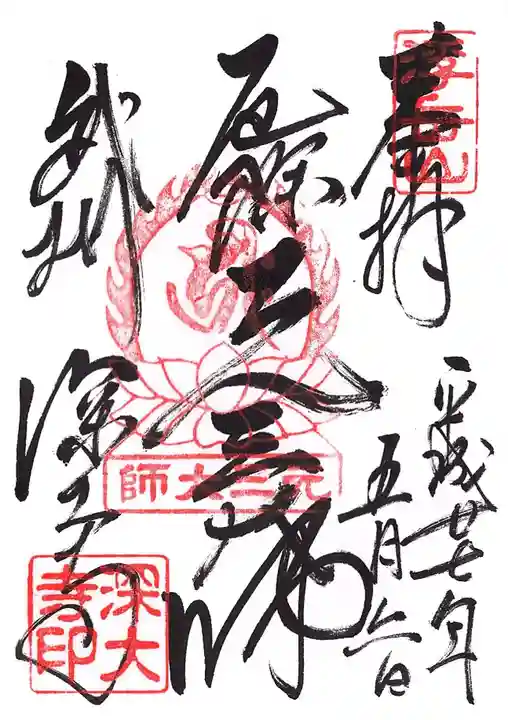 奉拝
浮岳山
平成廿七年
五月六日
元三大師
武州
深大寺
深大寺印